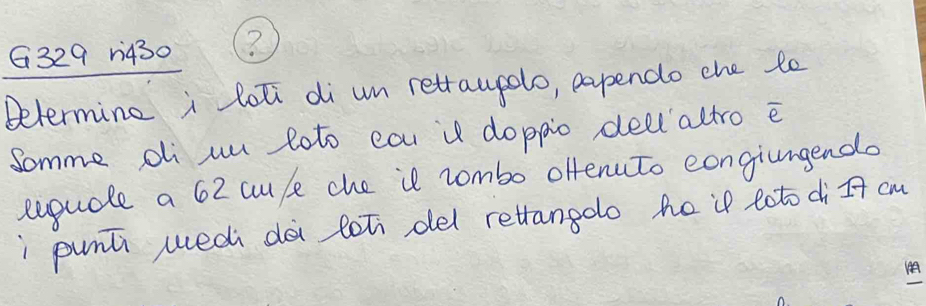 G329 n430 ?
Determina i lati di un rettangolo, sapendo che la
somma di un lato con il doppio dell'altro è
uguale a 62 cm/e che il rombo ottenuto congiungendo
i punti medi dei lati del rettangolo ha il lato di 17 cm